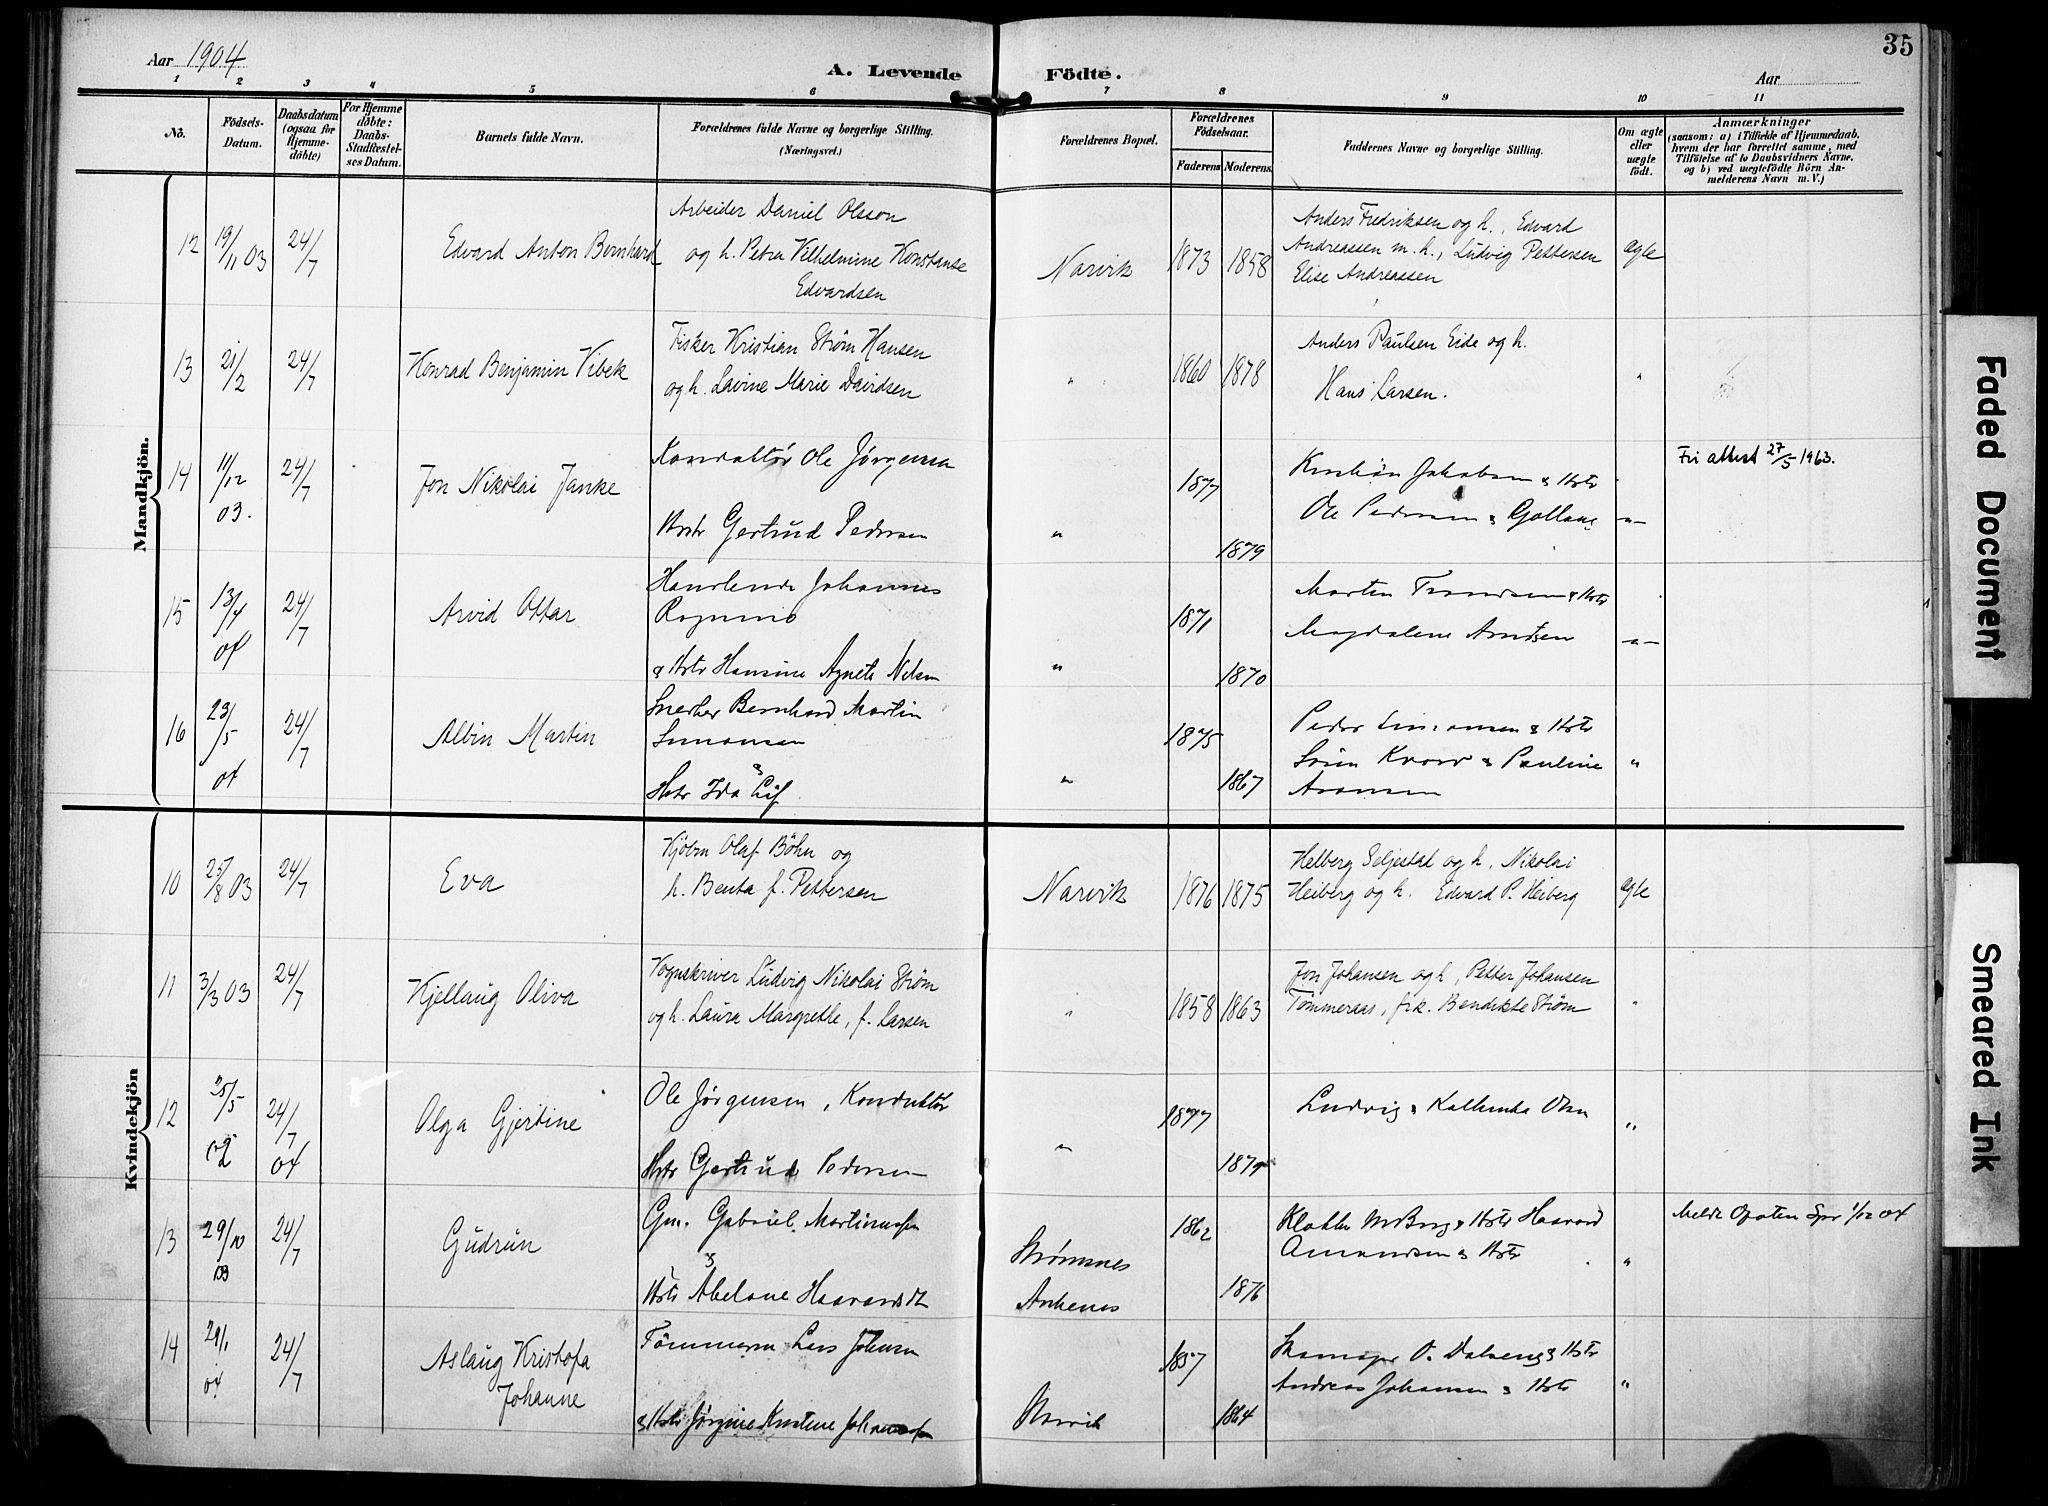 Aar 1904
A. Levende Födte.
Aar
35
1 2 3 4 5 6 7 8 9 10 11
No.
Födsels-Datum.
Daabsdatum (ogsaa for Hjemme-döbte)
For Hjemme döbte: Daabs-Stadfæstel-ses Datum.
Barnets fulde Navn.
Forældrenes fulde Navne og borgerlige Stilling.
(Næringsvei.)
Forældrenes Bopæl.
Forældrenes Födselsaar.
Faderens Moderens
Faddernes Navne og borgerlige Stilling.
Om ægte eller uægte födt.
Anmærkninger
(saasom: a) i Tilfælde af Hjemmedaab, hvem der har forrettet samme, med Tilföielse af to Daabsvidners Navne, og b) ved uægtefödte Börn An-melderens Navn m. V.)
Mandkjön.
12 19/11 03 24/7 Edvard Anton Bernhard
Arbeider Daniel Olsson
og h. Petra Vilhelmine Konstanse
Edvardsen
Narvik 1873 1858
Anders Fredriksen og h., Edvard
Andreassen m. h., Ludvig Pettersen
Elise Andreassen
ægte
13 21/2 24/7 Konrad Benjamin Vibek
Fisker Kristian Strøm Hansen
og h. Lavine Marie Davidsen
" 1860 1878
Anders Paulsen Eide og h.
Hans Larsen.
"
14 11/12 03. 24/7 Jon Nikolai Janke
Konduktør Ole Jørgensen
Hstr Gertrud Pedersen
" 1877 1879
Kristian Jakobsen & Hstr
Ole Pedersen &
-"-
Fri attest 27/5 1963.
15 13/4 04 24/7 Arvid Ottar
Handlende Johannes
& Hstr Hansine Agnete Nilsen
" 1871 1870
Morten & Hstr
Magdalene Arntsen
-"-
16 23/5 04 24/7 Albin Martin
Snedker Bernhard Martin
Simonsen
&
Hstr Ida
" 1875 1867
Peder Simonsen & Hstr
Søren & Pauline
Aronsen
"
Kvindekjön
10 25/8 03 24/7 Eva
Kjøbm Olaf Böhn og
h. Benta f. Pettersen
Narvik 1876 1875
Helberg Seljestad og h. Nikolai
Heiberg og h. Edvard P. Heiberg
ægte
11 3/3 03 24/7 Kjellaug Oliva
Vognskriver Ludvig Nikolai Strøm
og h. Laura Margrethe, f. Larsen
" 1858 1863
Jon Johansen og h, Petter Johansen
Tømmeraas, frk. Bendikte Strøm
"
12 25/5 02 24/7 04 Olga Gjertine
Ole Jørgensen, Konduktør
Hstr Gertrud Pedersen
" 1877 1879
Ludvig & Olsen
"
13 29/10 03 24/7 Gudrun
Gm. Gabriel Martinussen
&
Hstr Abelone
Strømsnes
Ankenes
1862 1876
Klokker & Hstr Haavard
Amundsen & Hstr
"
14 29/1 04 24/7 Aslaug Kristofa
Johanne
Tömmerm Lars Johnsen
& Hstr Jørgine Kristine
Narvik 1857 1864
O. & Hstr
Andreas Johansen & Hstr
"
Faded Document
Smeared Ink